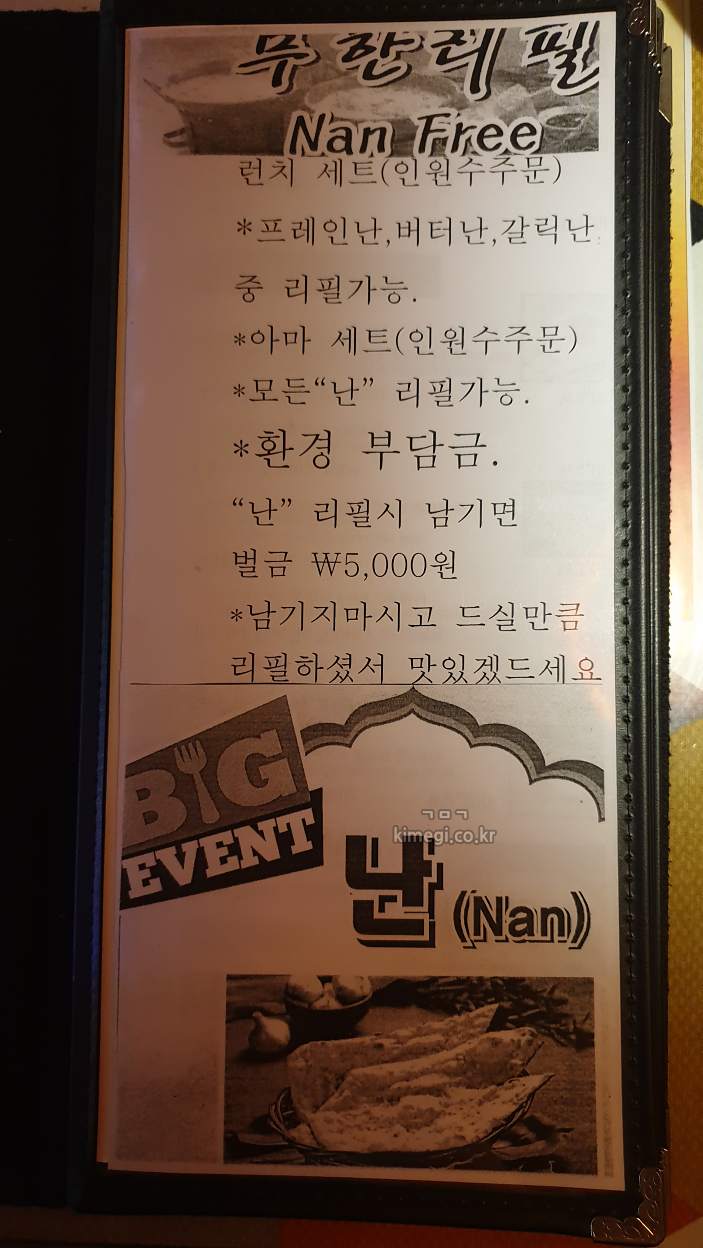 무한리필
Nan Free
런치 세트(인원수주문)
*프레인난,버터난,갈릭난
중 리필가능.
*아마 세트(인원수주문)
*모든“난” 리필가능.
*환경 부담금.
“난” 리필시 남기면
벌금 ₩5,000원
*남기지마시고 드실만큼
리필하셨서 맛있겠드세요
BIG
EVENT
ㄱㅁㄱ
kimegi.co.kr
난 (Nan)